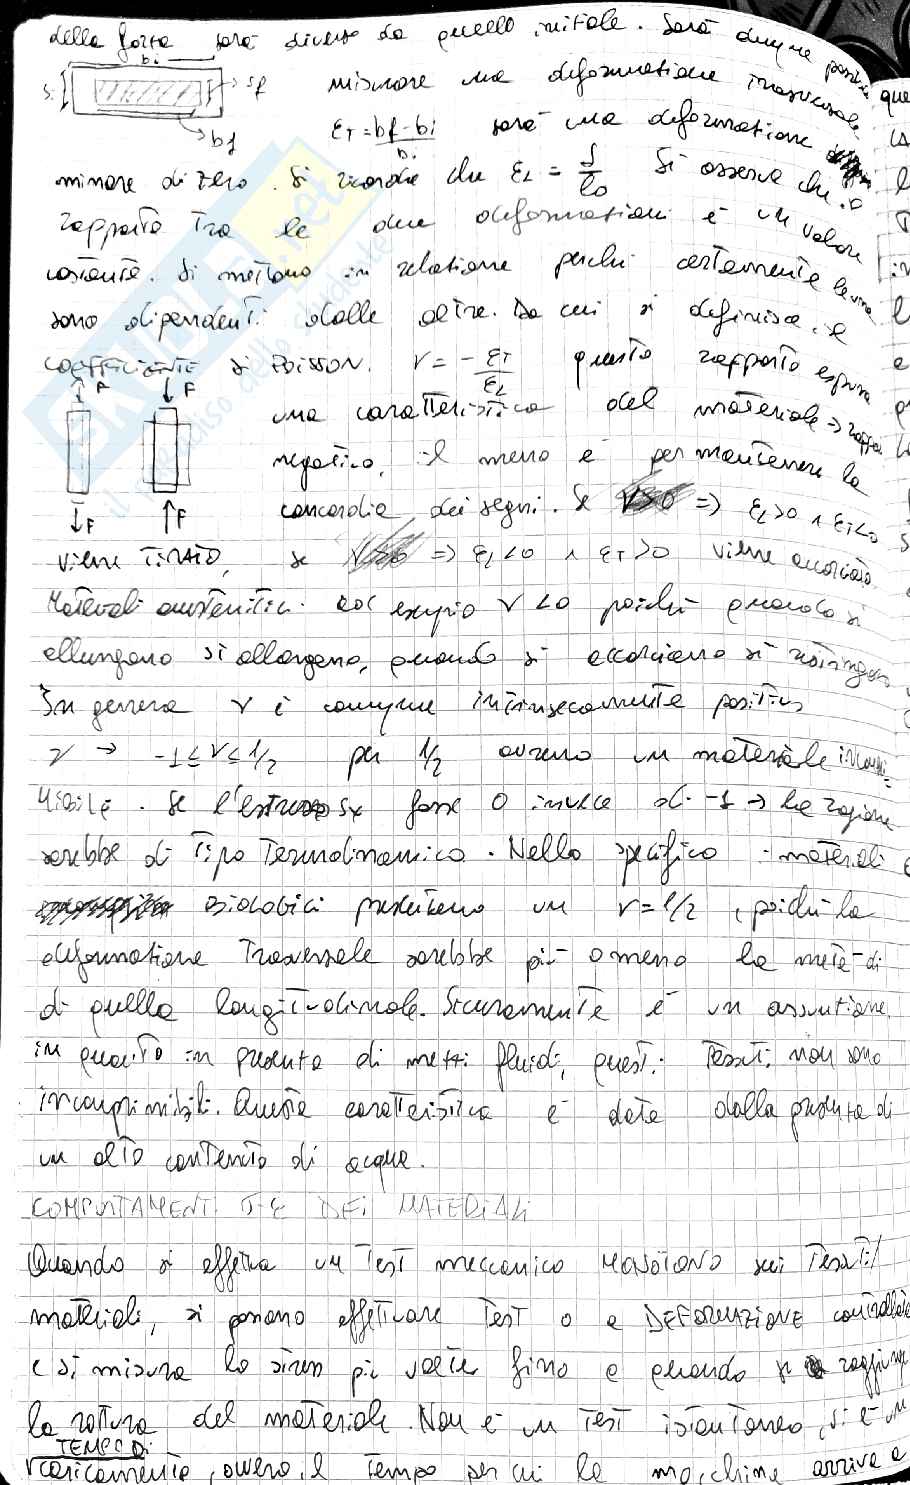 della forza sarà diverso da quello iniziale. Sarà dunque possibile
bi
si sf misurare una deformazione trasversale
bf εT = bf - bi / bi sarà una deformazione
minore di zero. Si ricorda che εL = δ / l0 Si osserva che il
rapporto tra le due deformazioni è un valore
costante. Si mettono in relazione perché certamente le une
sono dipendenti dalle altre. Da cui si definisce il
COEFFICIENTE di POISSON. ν = - εT / εL questo rapporto esprime
F F una caratteristica del materiale →
negativo, il meno è per mantenere la
concordia dei segni. Se ⇒ εL>0 ∧ εT<0
F F
viene TIRATO, se ⇒ εL<0 ∧ εT>0 viene accorciato
Materiali ad esempio ν<0 poiché quando si
allungano si allargano, quando si accorciano si restringono
In genere ν è comunque intrinsecamente positivo
ν → -1 ≤ ν ≤ 1/2 per 1/2 avremo un materiale incompri-
mibile. Se l'estremo sx fosse 0 invece di -1 → la ragione
sarebbe di tipo termodinamico. Nello specifico i materiali
BIOLOGICI presentano un ν = 1/2, poiché la
deformazione trasversale sarebbe più o meno la metà di
di quella longitudinale. Sicuramente è un assunzione,
in quanto in presenza di mezzi fluidi, questi tessuti non sono
incomprimibili. Questa caratteristica è data dalla presenza di
un alto contenuto di acqua.
COMPORTAMENTI σ-ε DEI MATERIALI
Quando si effettua un test meccanico MONOTONO sui tessuti/
materiali, si possono effettuare test o a DEFORMAZIONE controllata
e si misura lo stress più volte fino a quando si raggiunge
la rottura del materiale. Non è un test istantaneo, si è un
TEMPO DI
caricamento, ovvero il tempo per cui la macchina arriva a
SKUOLA.net
il paradiso dello studente